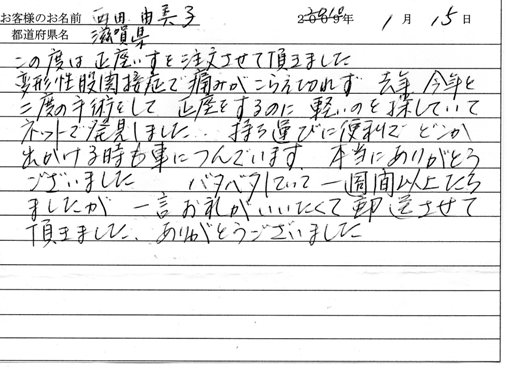 お客様のお名前 西田 由美子 2010 2009年 1月 15日
都道府県名 滋賀県
この度は正座いすを注文させて頂ました
変形性股関接症で痛みがこらえ切れず 去年 今年と
二度の手術をして 正座をするのに 軽いのを探していて
ネットで発見しました、持ち運びに便利で どこか
出かける時も車につんでいます 本当にありがとう
ございました バタバタしていて 一週間以上たち
ましたが 一言お礼がいいたくて 郵送させて
頂きました、ありがとうございました